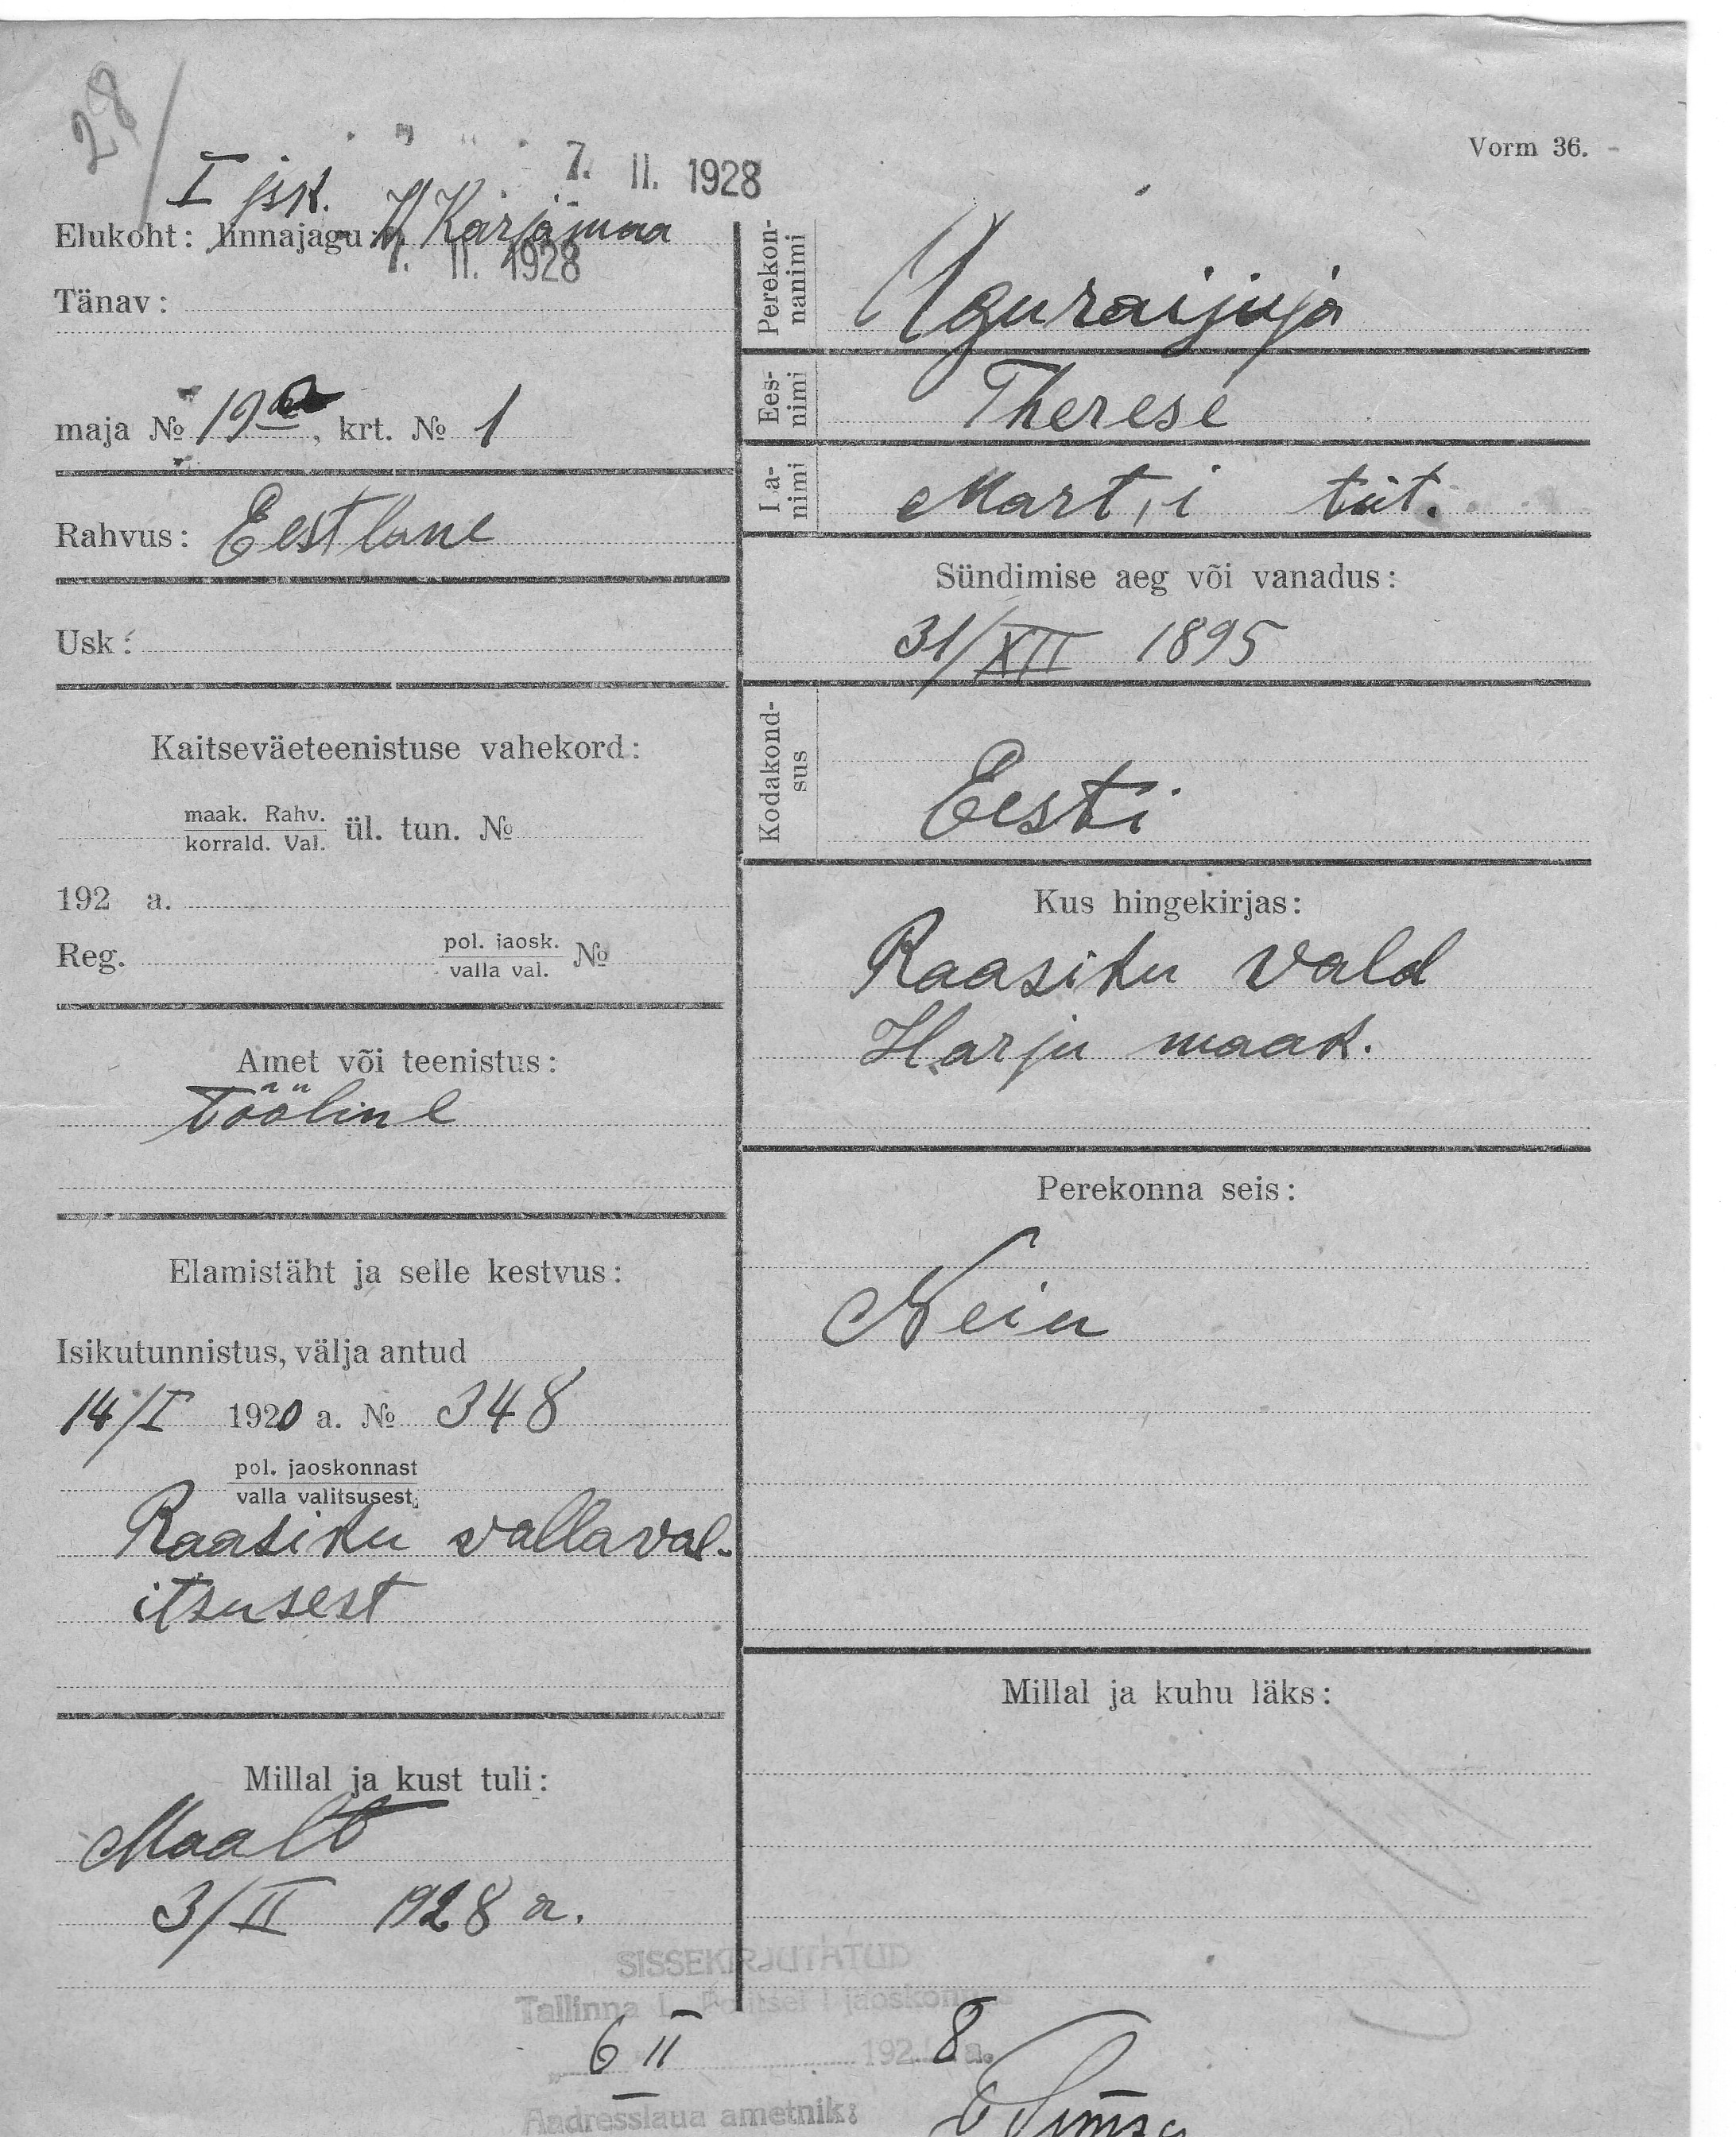 28
Vorm 36.
7. II. 1928
I jsk.
Elukoht: linnajagu: V. Karjamaa
7. II. 1928
Tänav:
maja № 19a, krt. № 1
Rahvus: Eestlane
Usk:
Kaitseväeteenistuse vahekord:
maak. Rahv.
korrald. Val. ül. tun. №
192 a.
Reg. pol. jaosk.
valla val. №
Amet või teenistus:
tööline
Elamistäht ja selle kestvus:
Isikutunnistus, välja antud
14/I 1920 a. № 348
pol. jaoskonnast
valla valitsusest
Raasiku vallaval-
itsusest
Millal ja kust tuli:
Maalt
3/II 1928 a.
Perekon-
nanimi
Aguraijuja
Ees-
nimi
Therese
Isa-
nimi
Mart, i tüt.
Sündimise aeg või vanadus:
31/XII 1895
Kodakond-
sus
Eesti
Kus hingekirjas:
Raasiku vald
Harju maak.
Perekonna seis:
Neiu
Millal ja kuhu läks:
SISSEKIRJUTATUD
Tallinna L. Politsei I jaoskonnas
6 II 1928 a.
Aadresslaua ametnik: